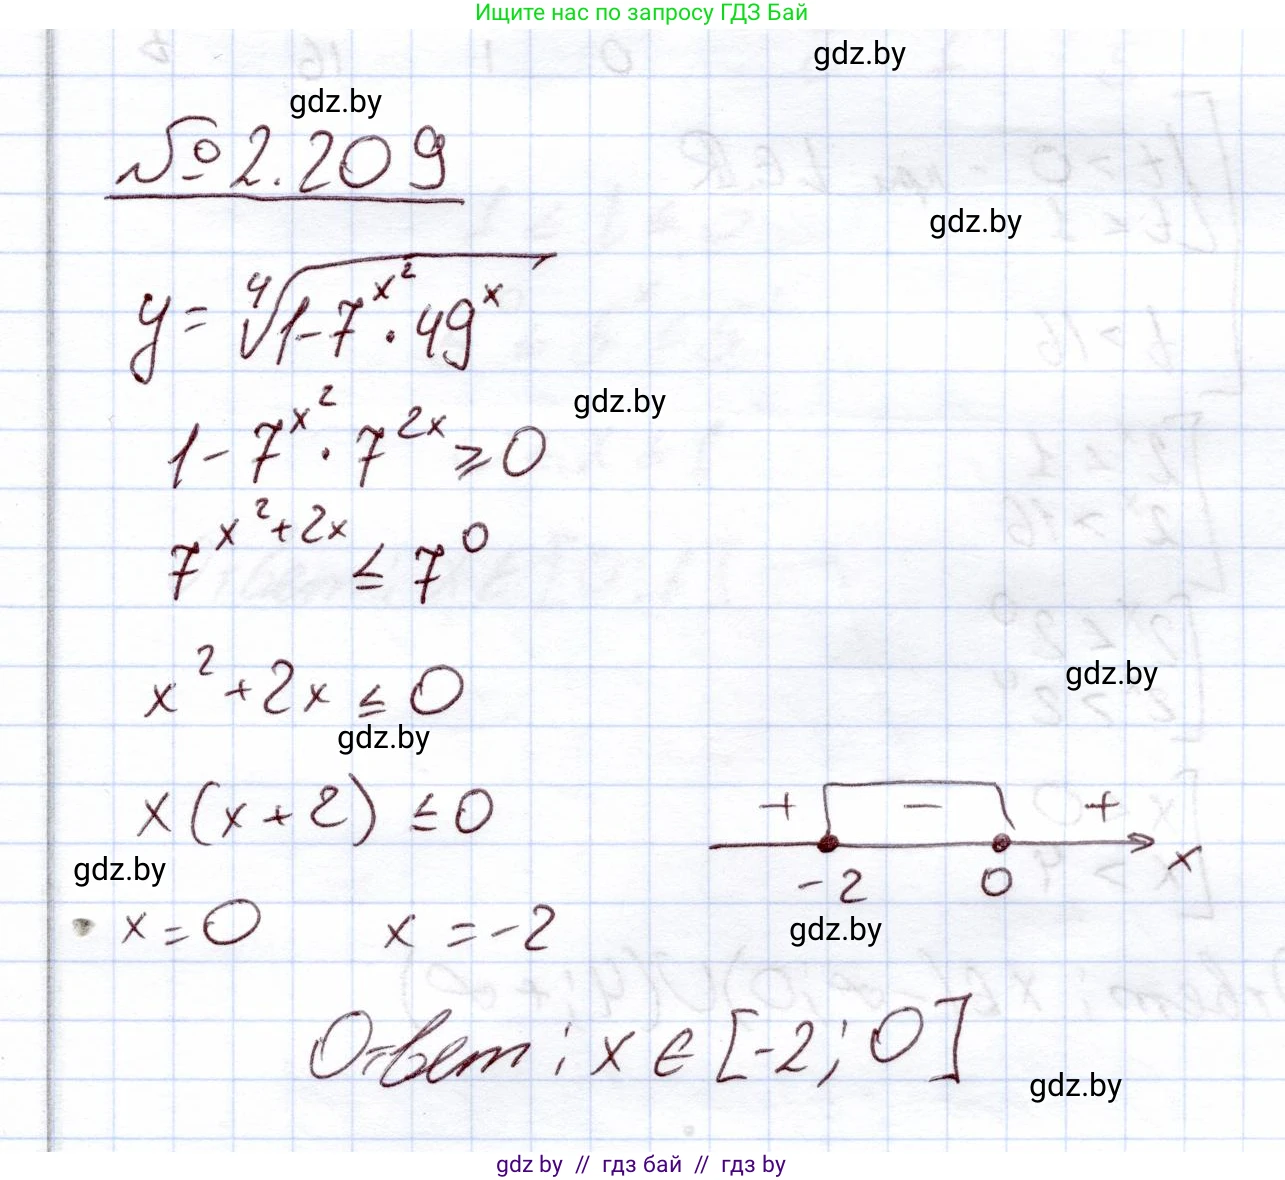 Ищите нас по запросу ГДЗ Бай
gdz.by
gdz.by
№ 2.209
gdz.by
y = ∜(1 - 7^(x²) · 49^x)
gdz.by
1 - 7^(x²) · 7^(2x) ≥ 0
7^(x²+2x) ≤ 7^0
x² + 2x ≤ 0
gdz.by
gdz.by
x(x + 2) ≤ 0
+ − +
-2 0 x
gdz.by
x = 0 x = -2
gdz.by
Ответ: x ∈ [-2; 0]
gdz.by
gdz by // гдз бай // гдз by